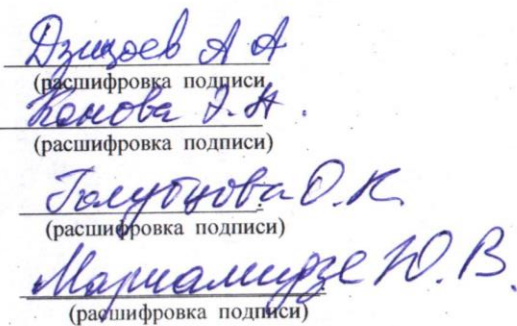 Дзицоев А А
(расшифровка подписи
Конова Э. Н.
(расшифровка подписи)
Голубцова О. К
(расшифровка подписи)
Мариамидзе Ю. В.
(расшифровка подписи)